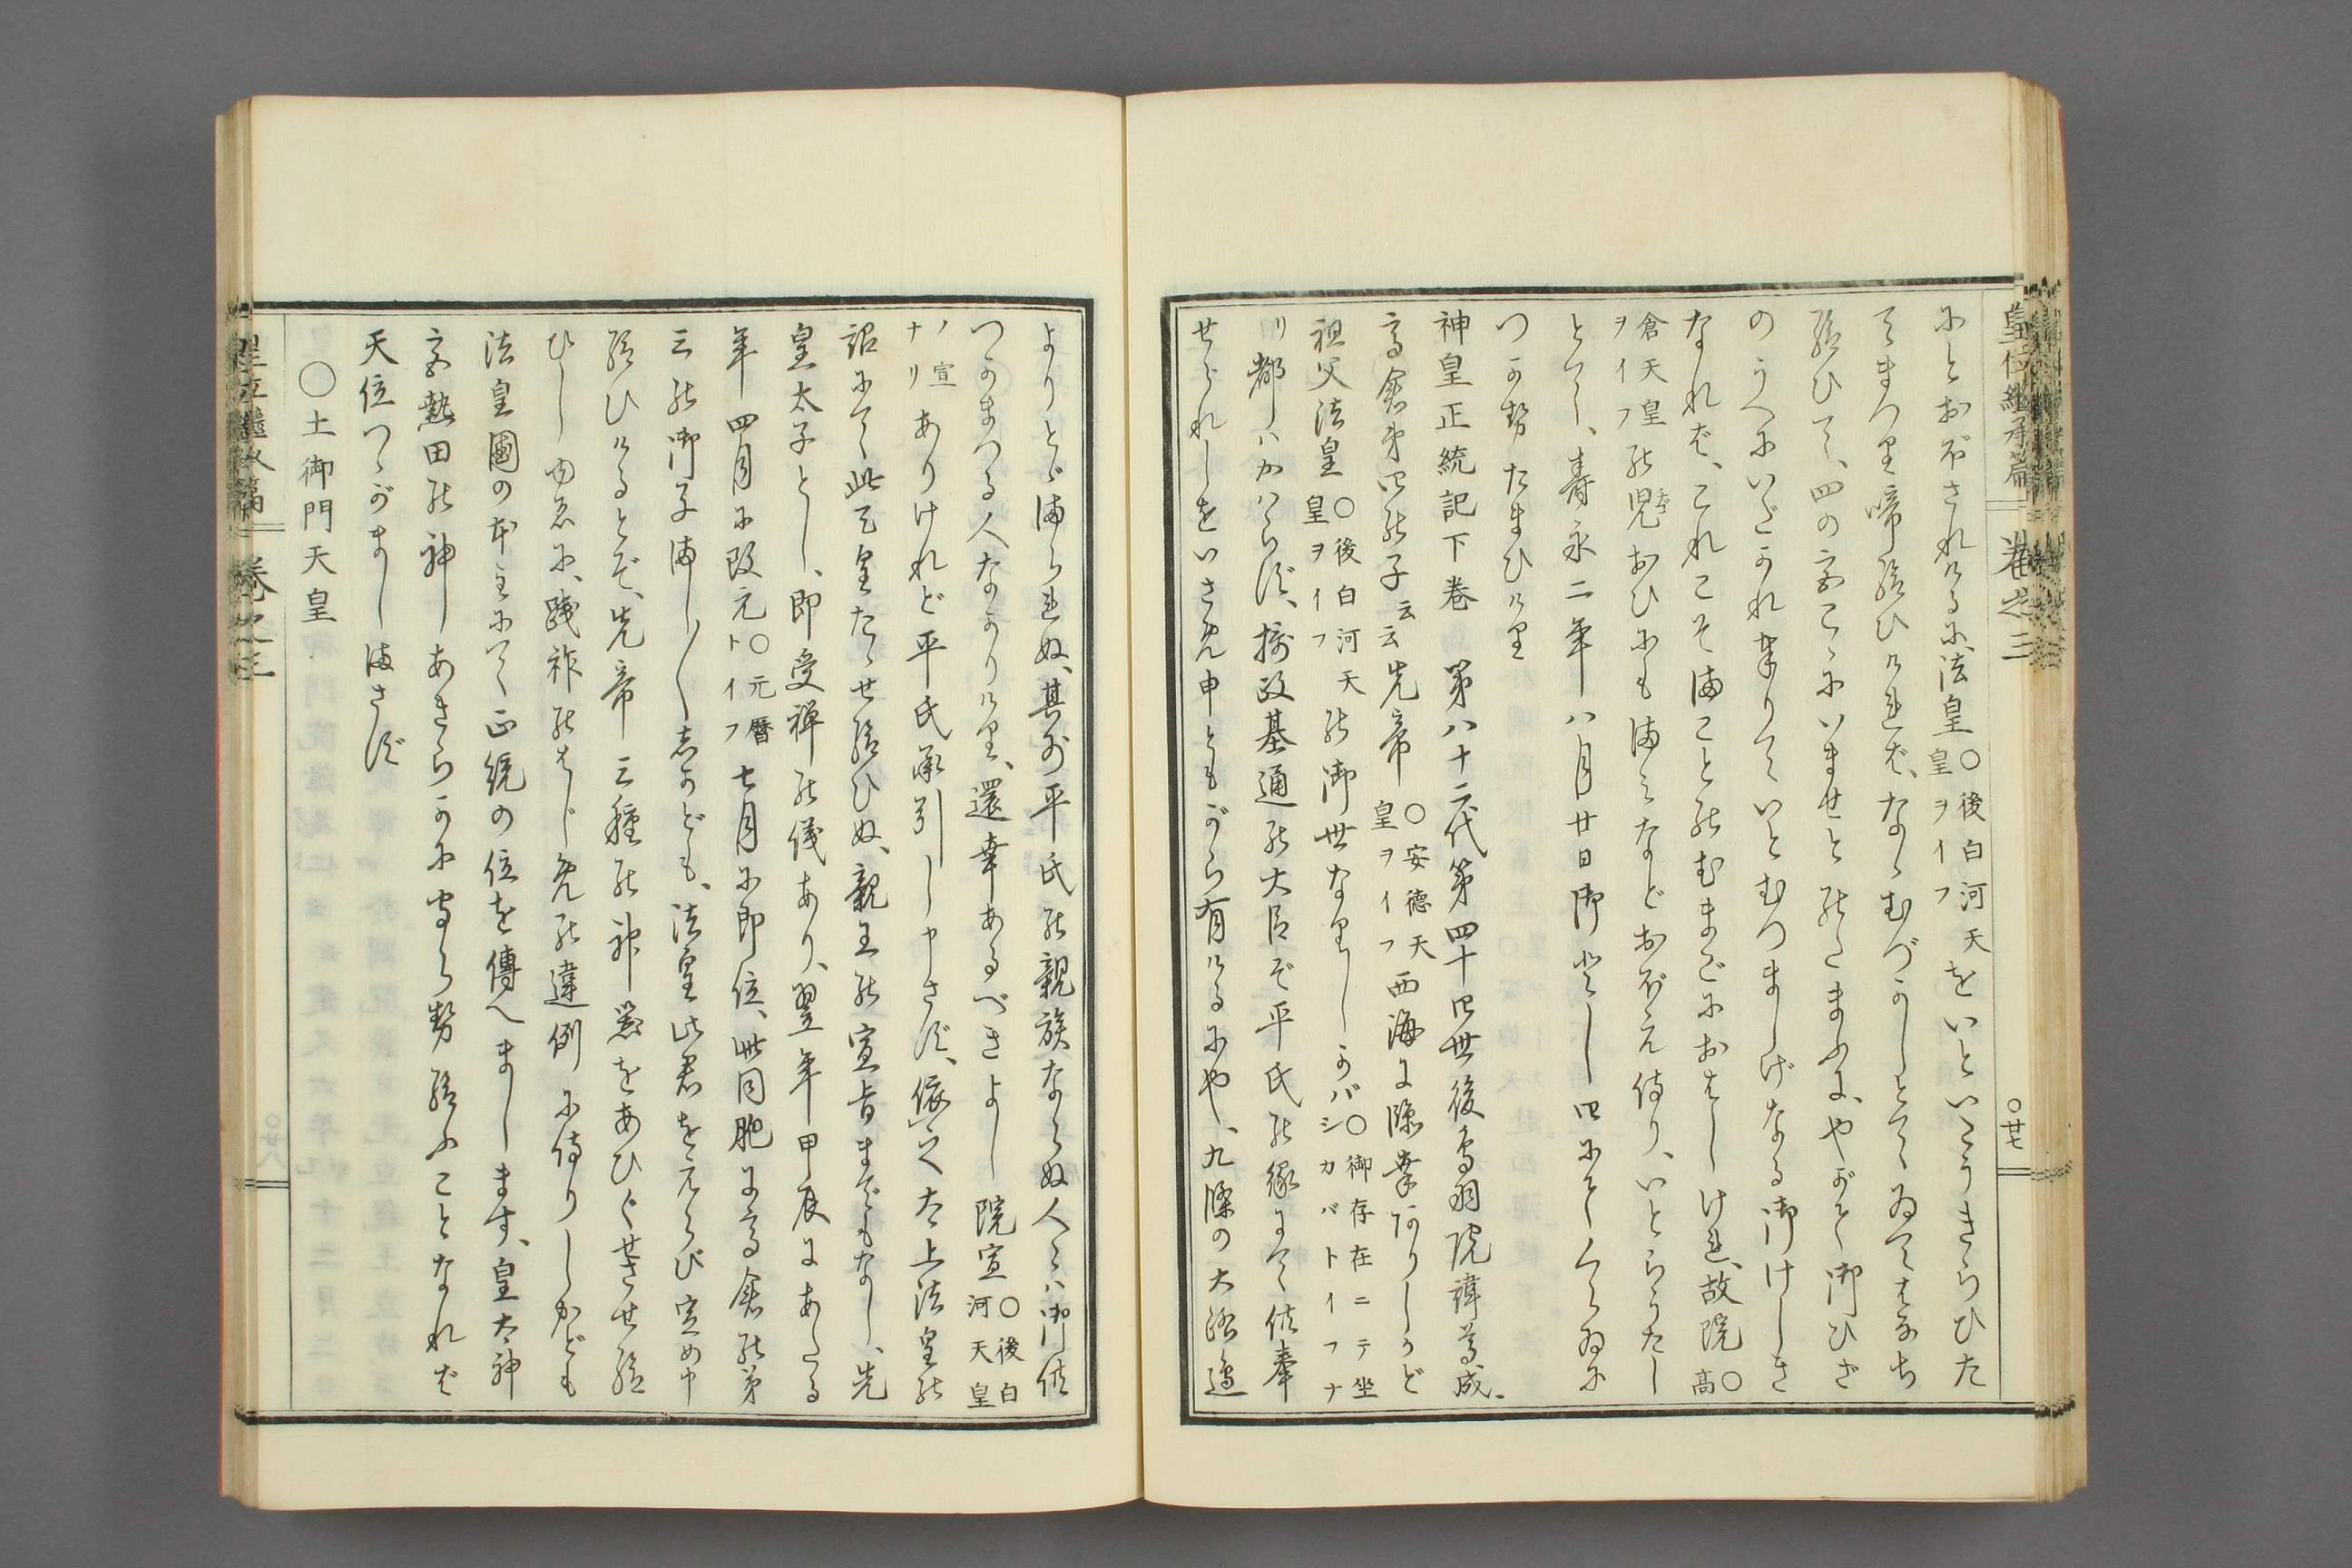 皇位繼承篇 卷之三 〇廿七
にとおぼされけるに、法皇〇後白河天皇ヲイフをいといとうきらひた
てまつり啼給ひければ、なゝむづかしとて、ゐてはなち
給ひて、四の宮こゝにいませとのたまふに、やがて御ひざ
のうへにいだかれ奉りていとむつましげなる御けしき
なれば、これこそまことのむまごにおはしけれ、故院〇高
倉天皇ヲイフの兒おひにもまみなどおぼえ侍り、いとらうたし
とて、壽永二年八月廿日御とし四にてくらゐに
つかせたまひけり
神皇正統記下卷 第八十二代第四十四世後鳥羽院諱尊成、
高倉第四の子云云先帝〇安德天皇ヲイフ西海に臨幸ありしかど
祖父法皇〇後白河天皇ヲイフの御世なりしかバ〇御存在ニテ坐シカバトイフナ
リ都ハかはらず、攝政基通の大臣ぞ平氏の縁にて供奉
せられしをいさめ申ともがら有けるにや、九條の大路邊
よりとゞまられぬ、其外平氏の親族ならぬ人々ハ御供
つかまつる人なかりけり、還幸あるべきよし院宣〇後白河天皇
ノ宣ナリありけれど平氏承引し申さず、依て太上法皇の
詔にて此天皇たゝせ給ひぬ、親王の宣旨までもなし、先
皇太子とし、即受禪の儀あり、翌年甲辰にあたる
年四月に改元〇元曆トイフ七月に即位、此同胞に高倉の第
三の御子ましましゝかども、法皇此君をえらび定め申
給ひけるとぞ、先帝三種の神器をあひぐせさせ給
ひしゆゑに、踐祚のはじめの違例に侍りしかども
法皇國の本主にて正統の位を傳へまします、皇太神
宮熱田の神あきらかにまもらせ給ふことなれば
天位つゝがましまさず
〇土御門天皇
皇位繼承篇 卷之三 〇廿八